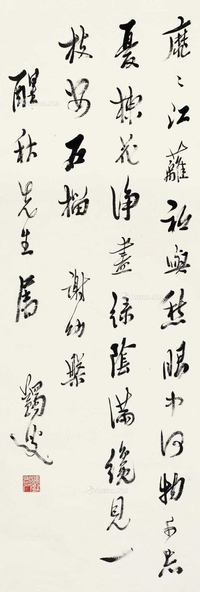 靡〻江蘺祗與愁眼中何物可忘
憂楝花淨盡綠陰滿纔見一
枝安石榴 謝幼槃
醒秋先生屬
蠲叟